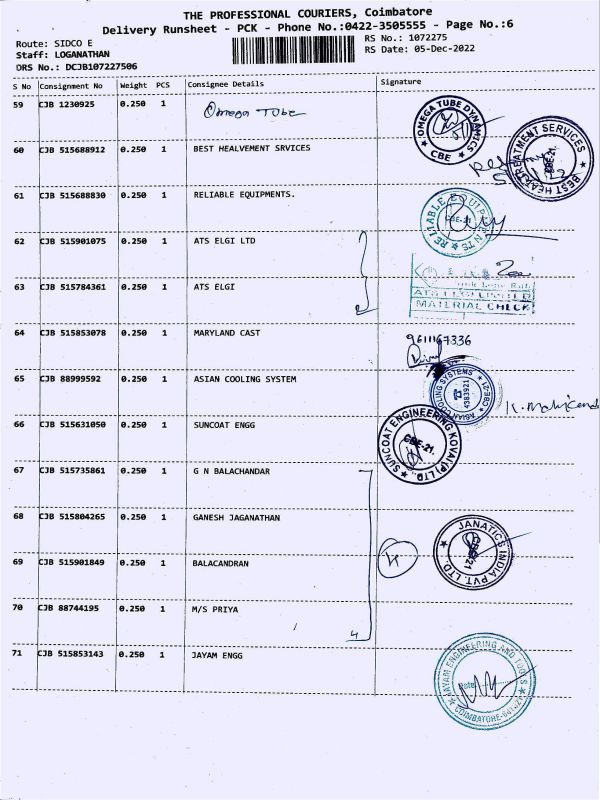 THE PROFESSIONAL COURIERS, Coimbatore
Delivery Runsheet - PCK - Phone No.:0422-3505555 - Page No.:6
Route: SIDCO E
RS No.: 1072275
Staff: LOGANATHAN
RS Date: 05-Dec-2022
DRS No.: DCJB107227506
S No Consignment No Weight PCS Consignee Details Signature
59 CJB 1230925 0.250 1 Omega Tube
OMEGA TUBE DYNAMICS
CBE
60 CJB 515688912 0.250 1 BEST HEALVEMENT SRVICES
BEST HEAT TREATMENT SERVICES
CBE-21.
61 CJB 515688830 0.250 1 RELIABLE EQUIPMENTS.
RELIABLE EQUIPMENTS
CBE-21
62 CJB 515901075 0.250 1 ATS ELGI LTD
63 CJB 515784361 0.250 1 ATS ELGI
ATS ELGI LIMITED
MATERIAL CHECK
64 CJB 515853078 0.250 1 MARYLAND CAST
9611167336
65 CJB 88999592 0.250 1 ASIAN COOLING SYSTEM
ASIAN COOLING SYSTEMS CBE-21
4383921
66 CJB 515631050 0.250 1 SUNCOAT ENGG
SUNCOAT ENGINEERING KOVAI (P) LTD.
CBE-21.
67 CJB 515735861 0.250 1 G N BALACHANDAR
68 CJB 515804265 0.250 1 GANESH JAGANATHAN
JANATICS INDIA PVT. LTD.
CBE-21
69 CJB 515901849 0.250 1 BALACANDRAN
70 CJB 88744195 0.250 1 M/S PRIYA
4
71 CJB 515853143 0.250 1 JAYAM ENGG
JAYAM ENGINEERING AND TOOLS
Date
COIMBATORE-641 021